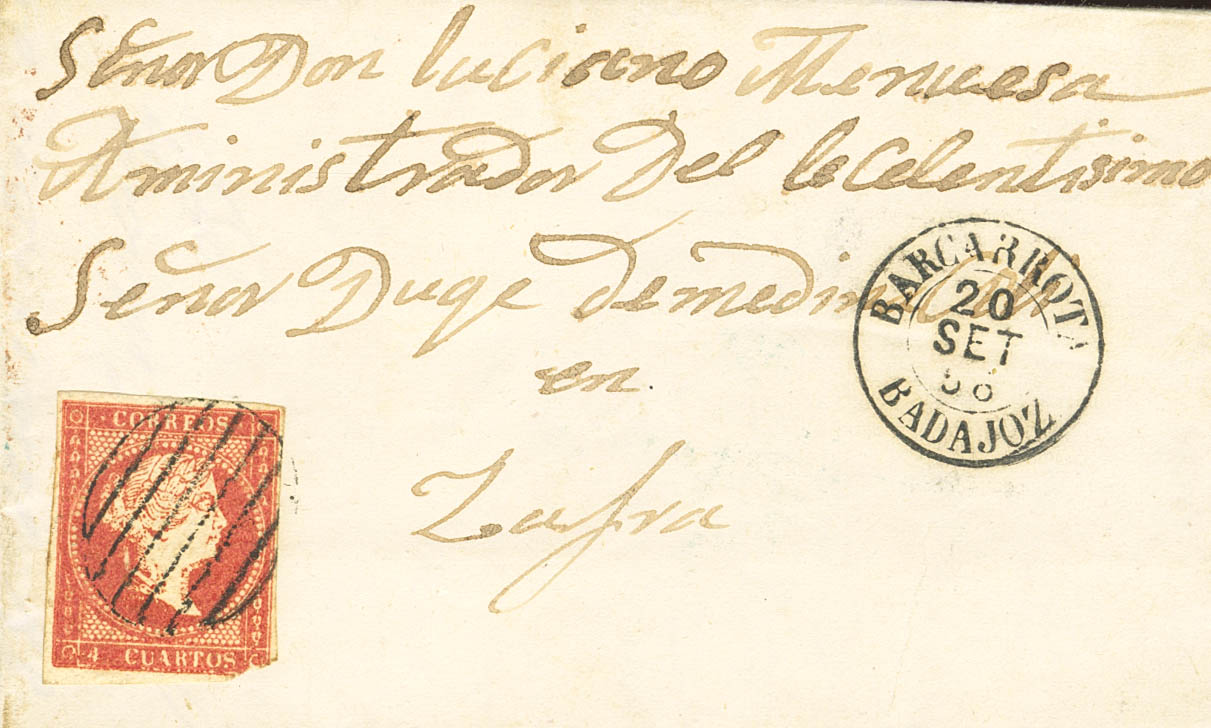 Señor Don luciano Menuesa
Aministrador Del lecelentisimo
Señor Duqe demedina
en
Zafra
BARCARROTA
20
SET
BADAJOZ
CORREOS
4 CUARTOS